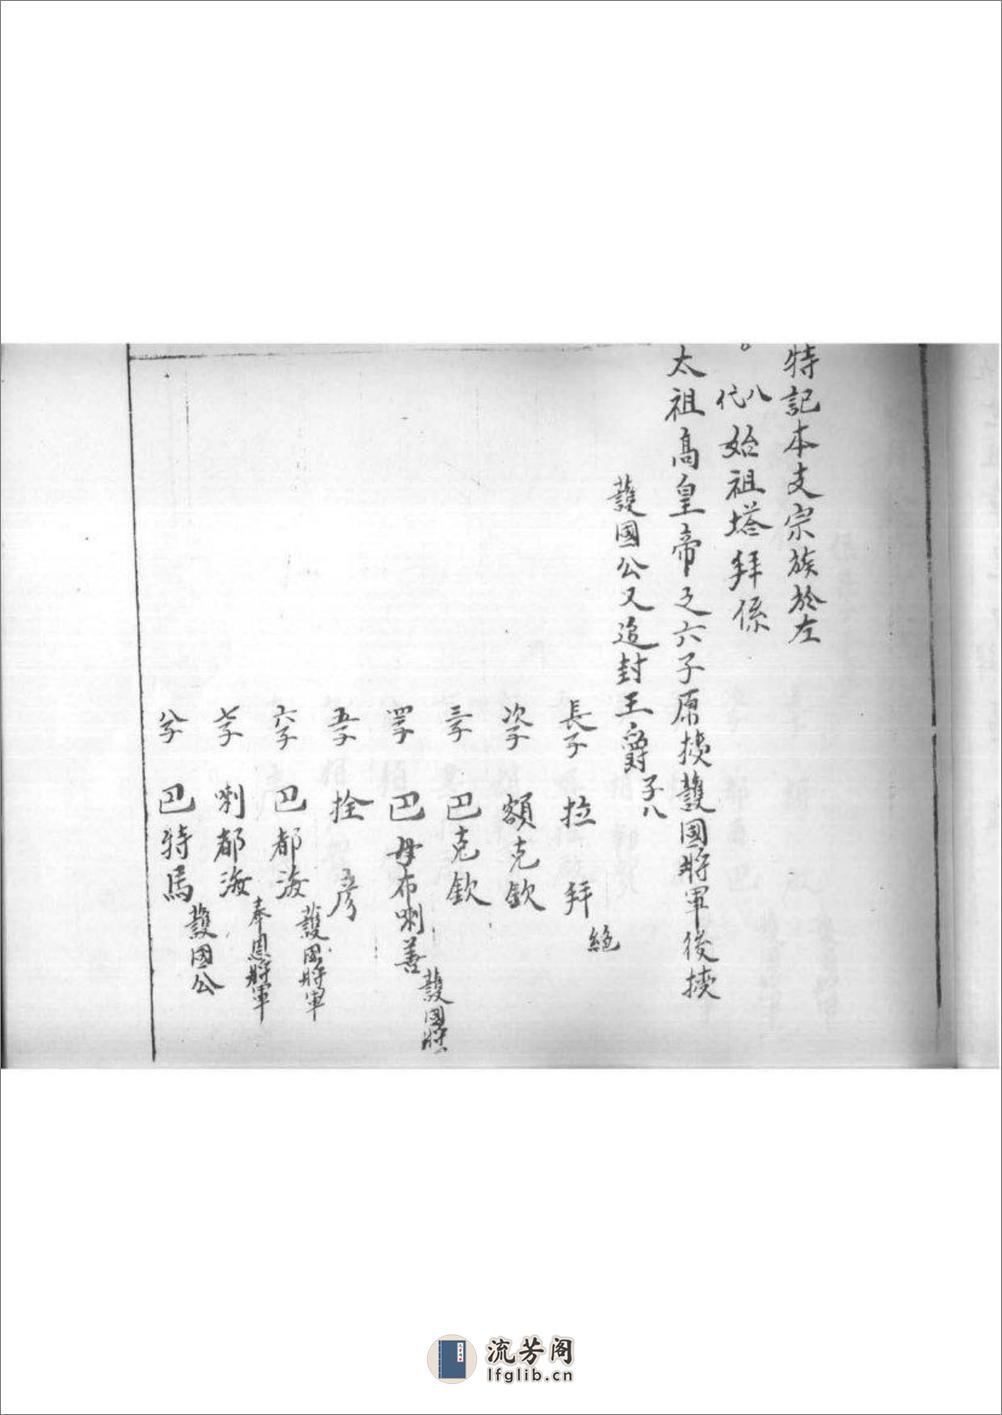 特記本支宗族於左
八代始祖塔拜係
太祖高皇帝之六子原授護國將軍後授
護國公又追封王爵
子八
長子 拉拜 絕
次子 額克欽
三子 巴克欽
四子 巴母布喇善 護國將軍
五子 拴彥
六子 巴都海 護國將軍
七子 喇都海 奉恩將軍
八子 巴特馬 護國公
流芳阁
lfglib.cn